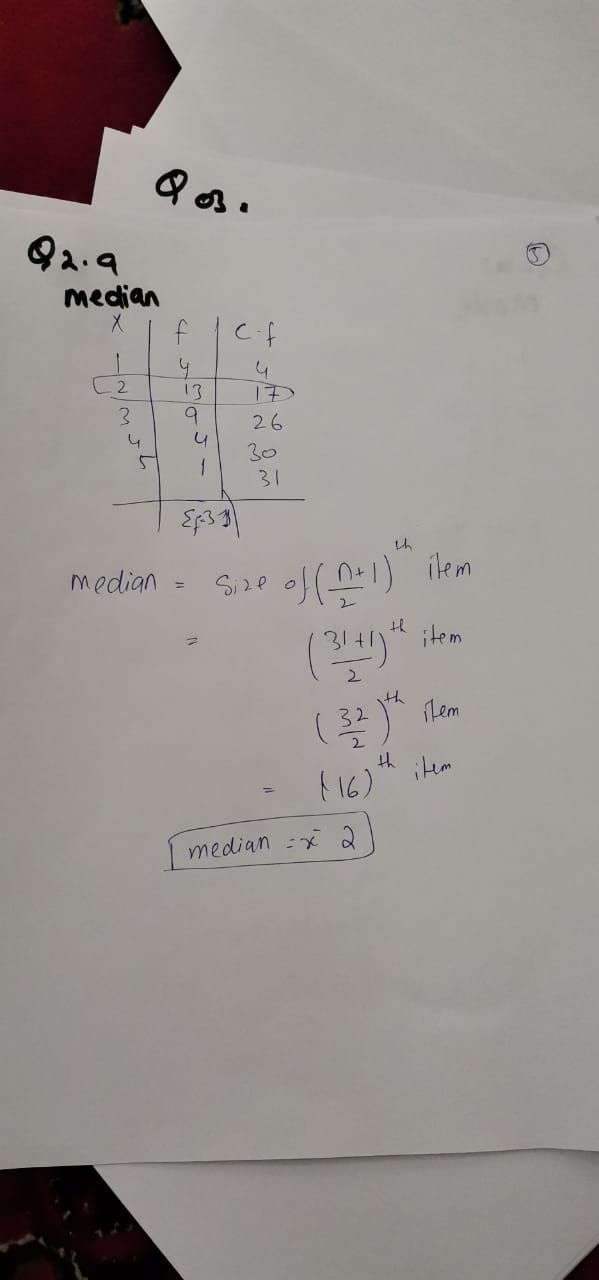 Q 03.
Q2.9
5
median
X f C.f
1 4 4
2 13 17
3 9 26
4 4 30
5 1 31
Σf=31
median = Size of (n+1/2)th item
= (31+1/2)th item
(32/2)th item
= (16)th item
median = x̄ 2